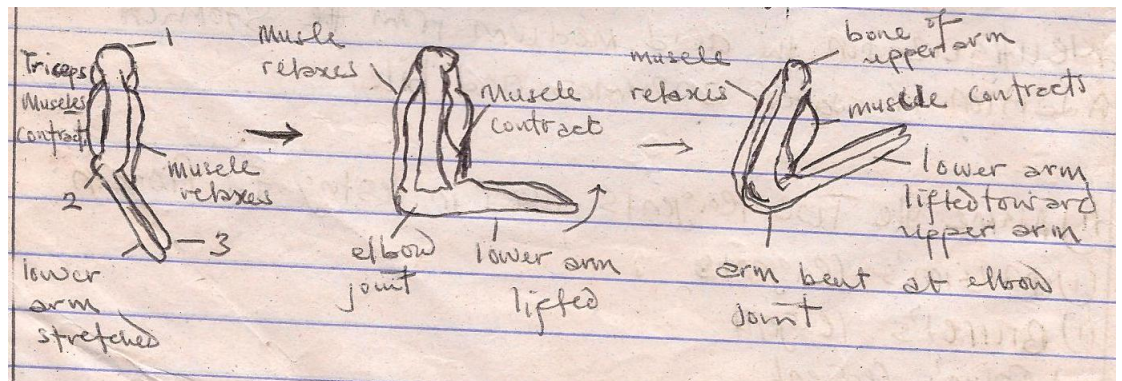 1
Triceps
Muscles
contract
muscle
relaxes
2
3
lower
arm
stretched
Muscle
relaxes
Muscle
contract
elbow
joint
lower arm
lifted
muscle
relaxes
bone of
upper arm
muscle contracts
lower arm
lifted toward
upper arm
arm bent at elbow
joint